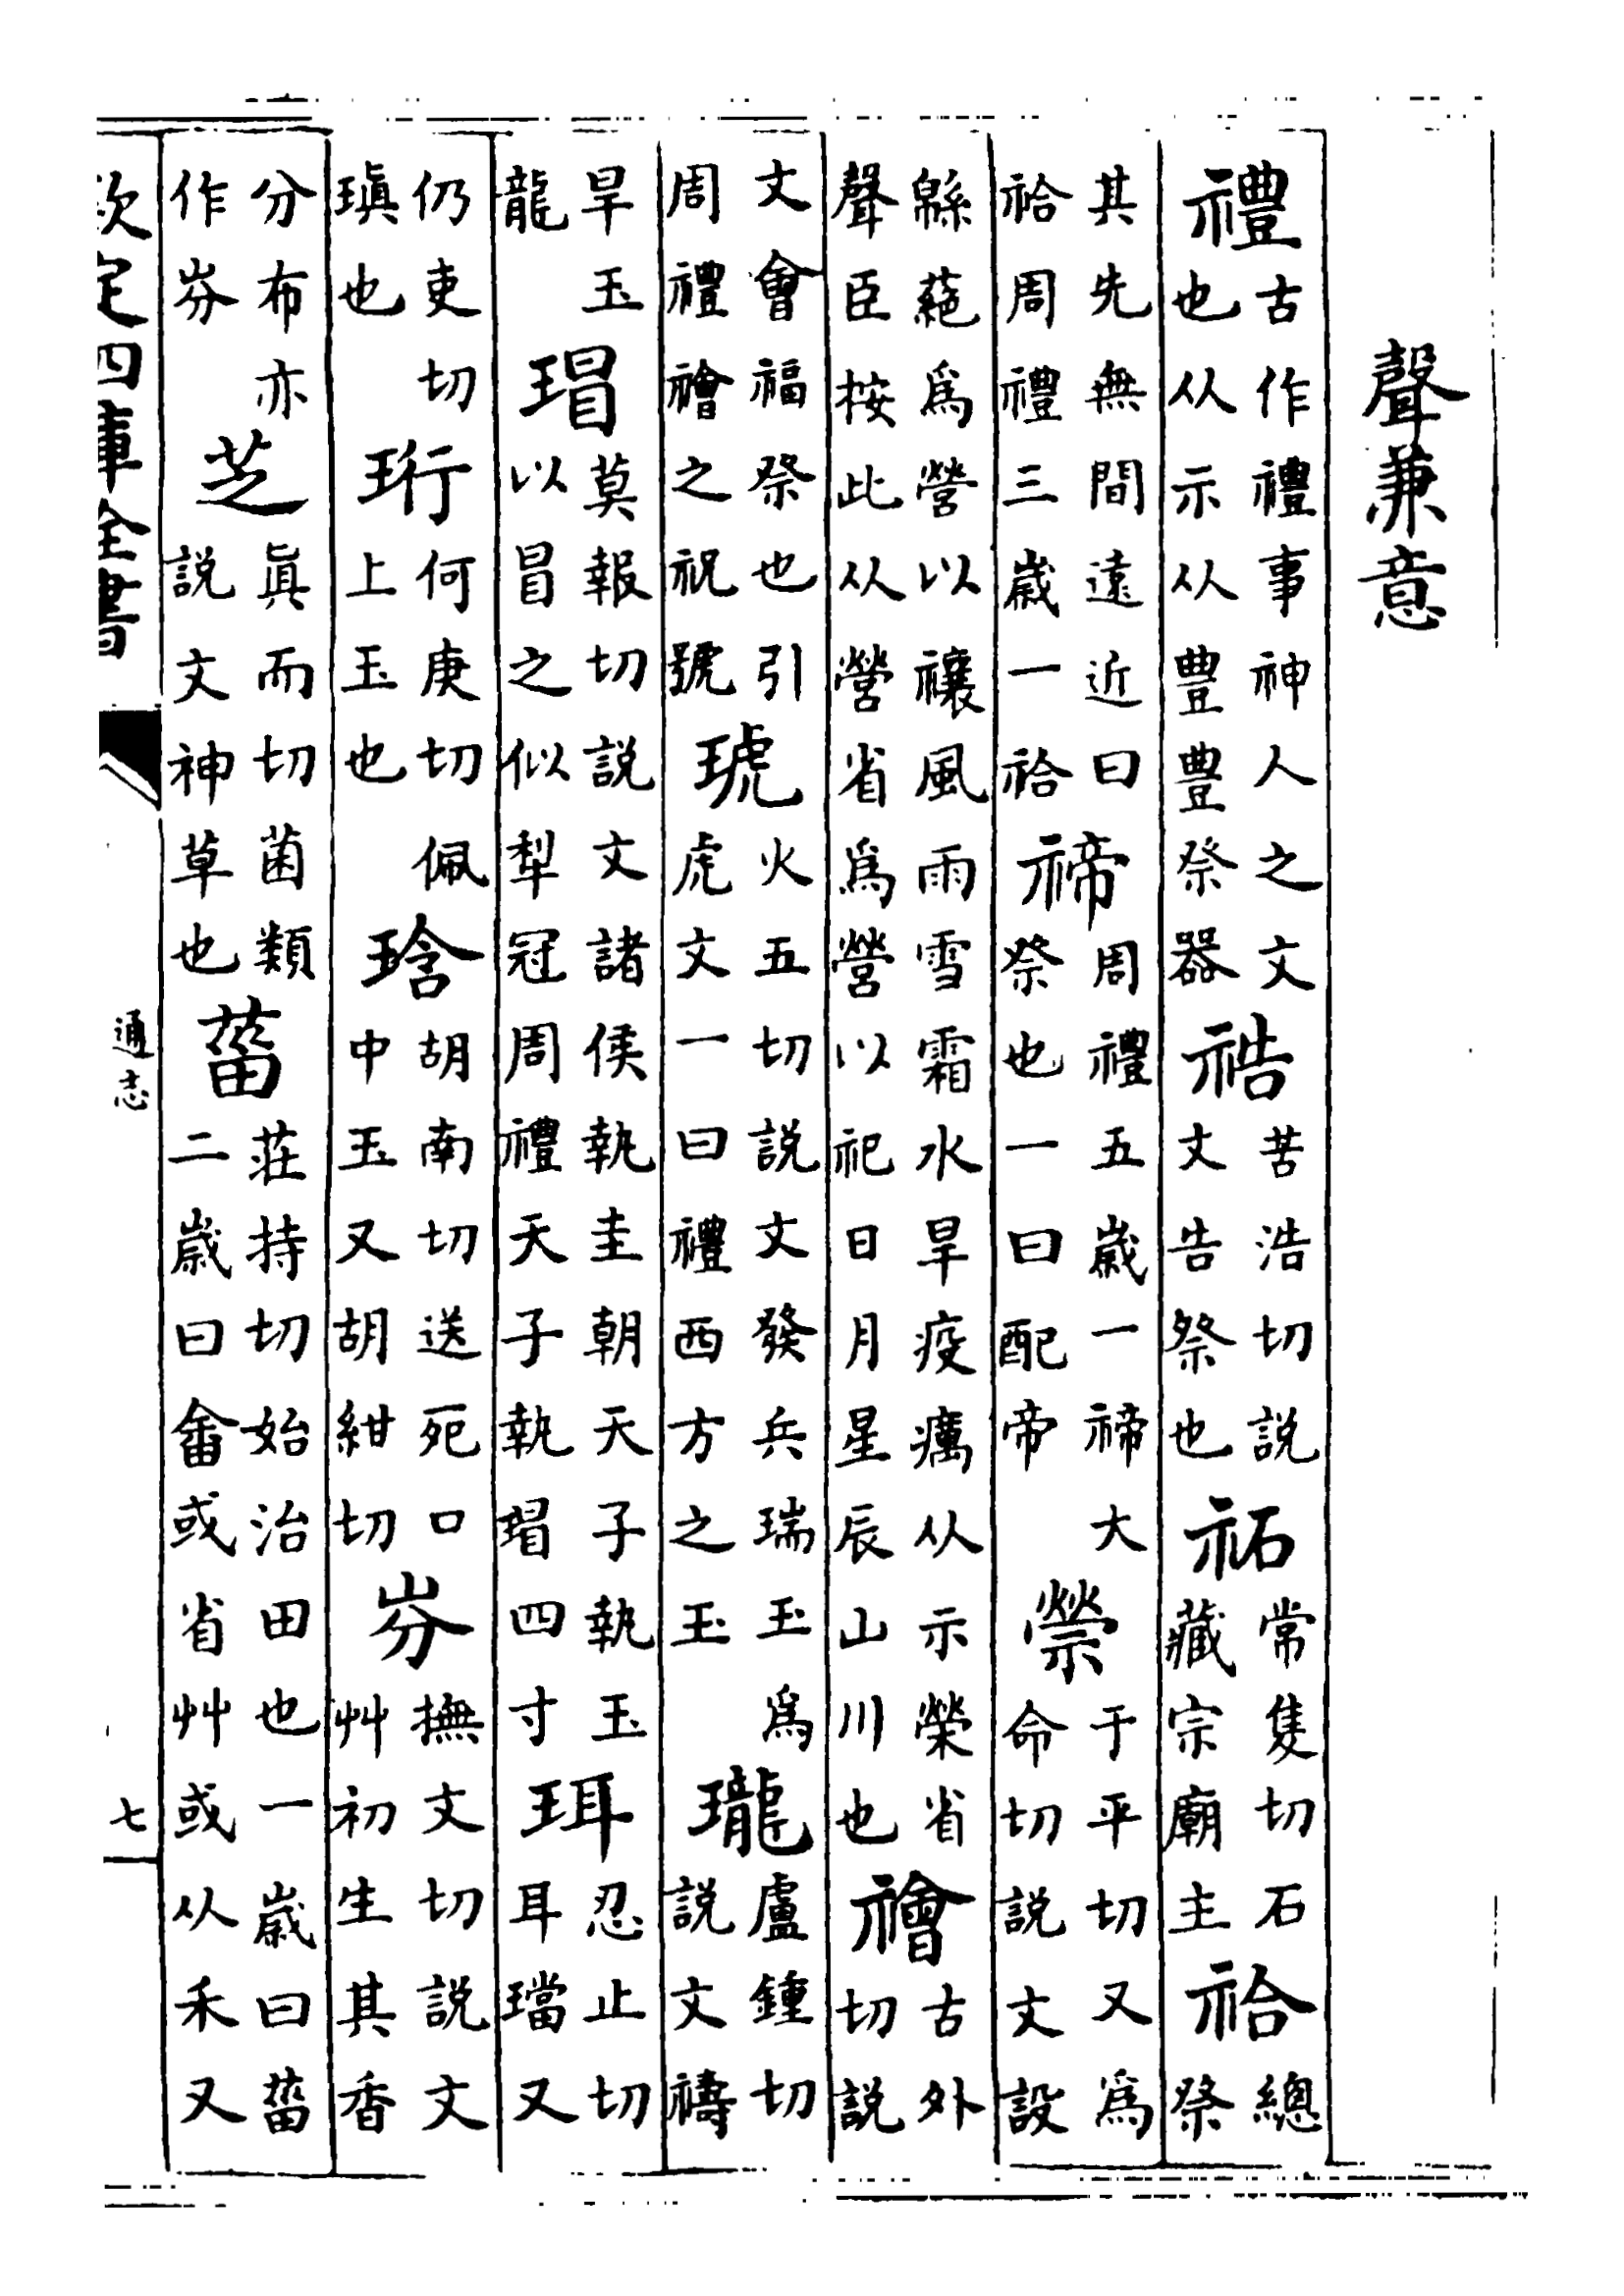 聲兼意
禮古作禮事神人之文也从示从豊豊祭器祰苦浩切説文告祭也祏常隻切石藏宗廟主祫總祭
其先無間遠近曰祫周禮三歲一祫禘周禮五歲一禘大祭也一曰配帝禜于平切又爲命切説文設
緜蕝爲營以禳風雨雪霜水旱疫癘从示榮省聲臣按此从營省爲營以祀日月星辰山川也禬古外切説
文會福祭也引周禮禬之祝號琥火五切説文發兵瑞玉爲虎文一曰禮西方之玉瓏盧鍾切説文禱
旱玉龍瑁莫報切説文諸侯執圭朝天子執玉以冒之似犁冠周禮天子執瑁四寸珥忍止切耳璫又
仍吏切瑱也珩何庚切佩上玉也琀胡南切送死口中玉又胡紺切𡴀撫文切説文艸初生其香
分布亦作𡴀芝眞而切菌類説文神草也菑莊持切始治田也一歲曰菑二歲曰畬或省艸或从禾又
欽定四庫全書
通志
七